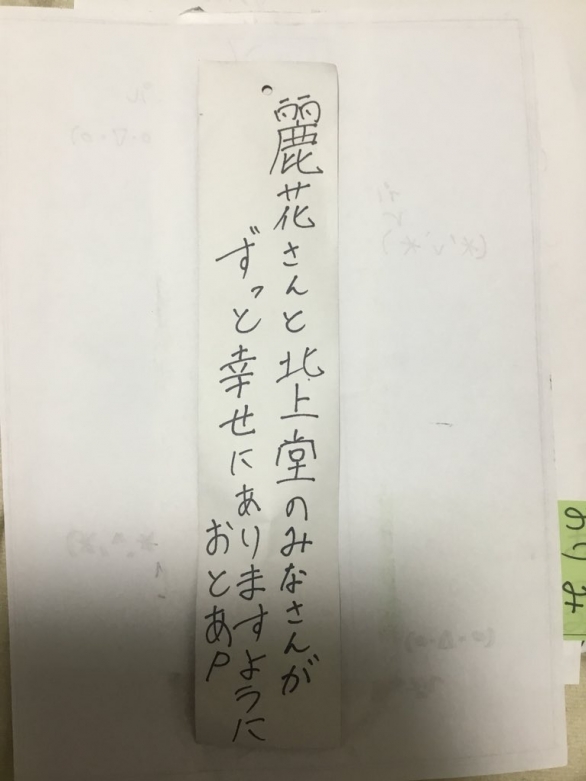 麗花さんと北上堂のみなさんが
ずっと幸せにありますように
おとあP